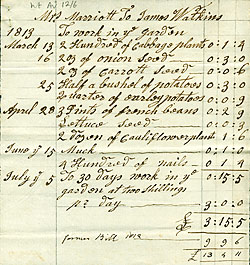 Mrs Marriott To James Watkins
1813 To work in ye garden
March 13 2 Hundred of Cabbage plants 0:1:4
16 2oz of onion seed 0:3:0
2oz of Carrott seed 0:0:6
25 Half a bushel of potatoes 0:3:0
quarter of earley potatoes 0:0:9
April 28 3 Pints of french beans 0:2:9
Lettuce seed
2 Dozen of Cauliflower plant 1:6
June ye 15 Muck 0:1:0
4 Hundred of nails 0 1 4
July ye 5 To 30 Days work in ye 0:15:5
garden at two shillings
pr Day 3:0:0
£ 3:15:5
former Bill was 9 9 6
£ 13 4 11